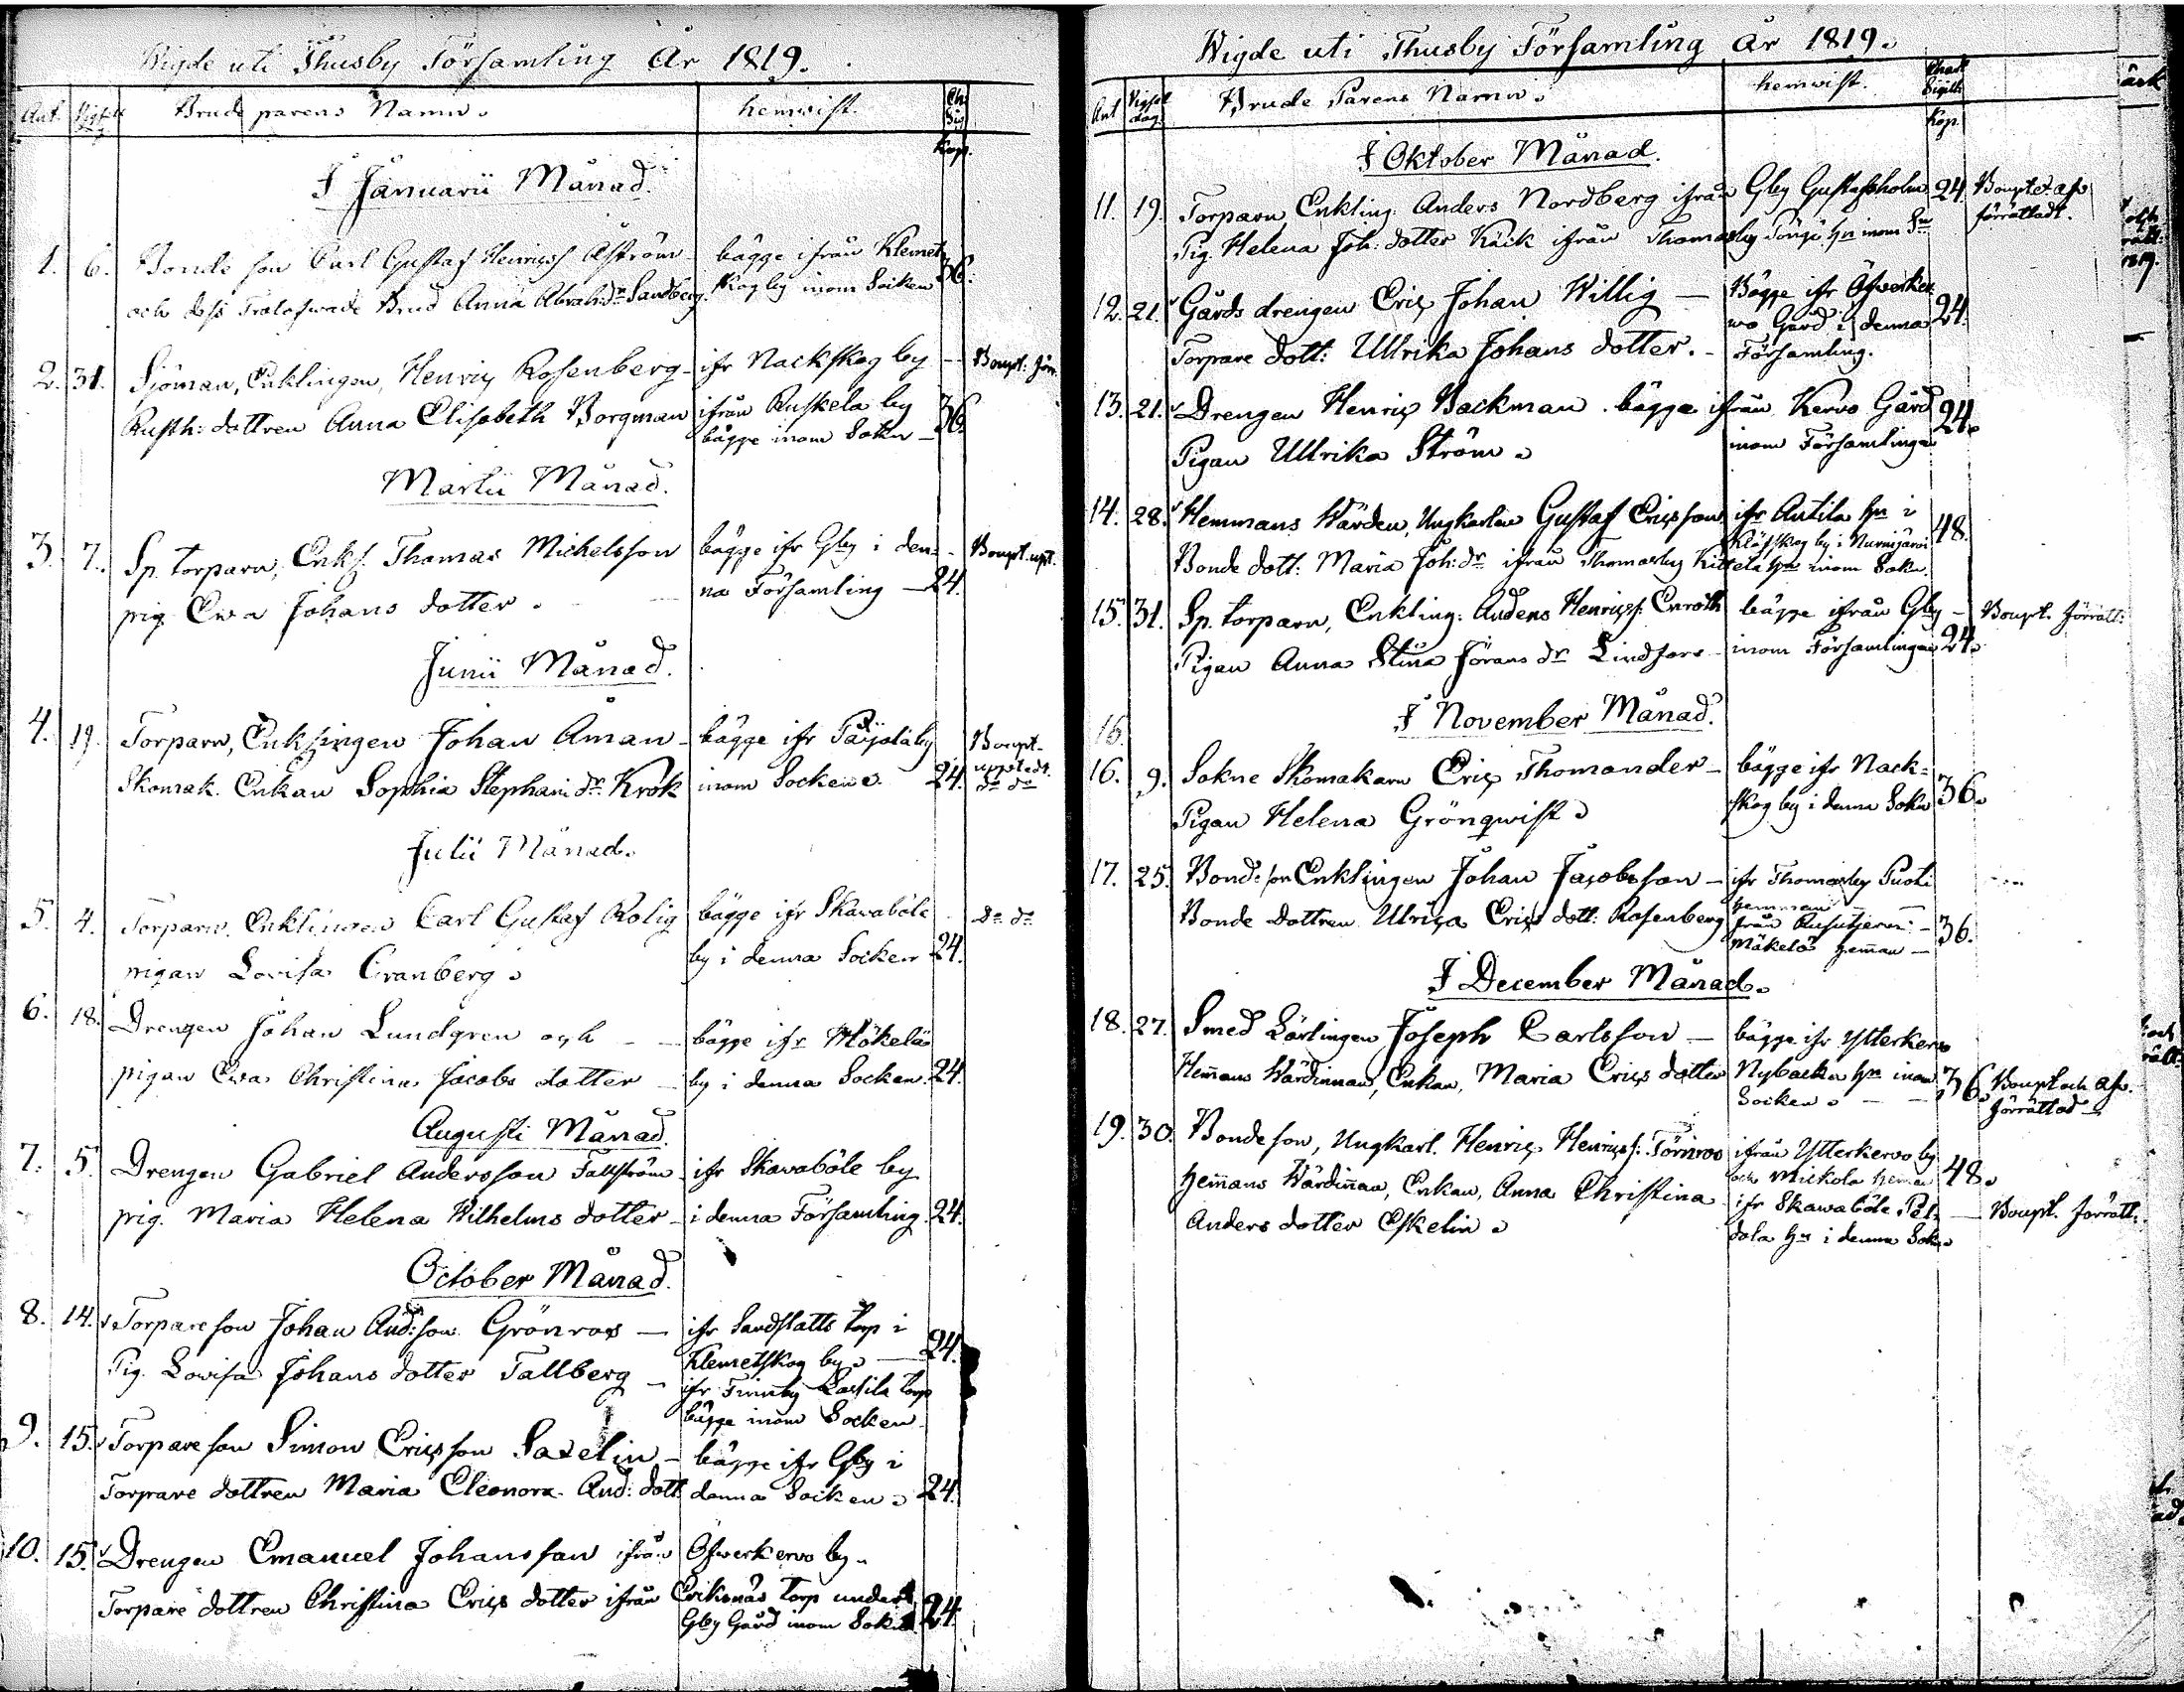 Wigde uti Thusby Församling År 1819.
Ant. Brude parens Namn. hemvist. Ch: Sig
Kop.
I Januarii Månad.
1. 6. Bonde son Carl Gustaf Henricss Åström - bägge ifrån Klemet
och dess Trolofwade Brud Anna Abrah: dr Sandberg. skog by inom Socken 36.
2. 31. Sjöman, Enklingen, Henric Rosenberg - ifr Nackskog by - Boupt: för.
Rusth: dottren Anna Elisabeth Borgman ifrån Ruskela by 36.
bägge inom Sokn -
Martii Månad.
3. 7. Sp. torparn, Enkl. Thomas Michelsson bägge ifr Gby i den= - Boupt. upt.
pig. Ewa Johans dotter. na Församling - 24.
Junii Månad.
4. 19. Torparn, Enklingen Johan Åman - bägge ifr by Boupt-
Skomak. Enkan Sophia Stephani dr Krök inom Sockene. 24. uppteds.
do do
Julii Månad.
5. 4. Torparn, Enklingen Carl Gustaf Rolig bägge ifr Skavaböle Do do
pigan Lovisa Granberg. by i denna Socken 24.
6. 18. Drengen Johan Lundgren och - - bägge ifr Mäkelä
pigan Ewa Christina Jacobs dotter - by i denna Socken. 24.
Augusti Månad.
7. 5. Drengen Gabriel Andersson Fallström - ifr Skavaböle by
pig. Maria Helena Wilhelms dotter - i denna Församling. 24.
October Månad.
8. 14. Torpare son Johan And:son Grönroos - ifr Sandslätts torp i
Klemetskog by. - 24.
Pig. Lovisa Johans dotter Tallberg - ifr Finnby torp
bägge inom Socken.
9. 15. Torpare son Simon Ericsson Saxelin - bägge ifr Gby i
Torpare dottren Maria Eleonora And: dott. denna Socken. 24.
10. 15. Drengen Emanuel Johansson ifrån Öfwerkervo by.
Torpare dottren Christina Erics dotter ifrån Eriksnäs torp under
Gby Gård inom Sokn. 24.
Wigde uti Thusby Församling År 1819.
Ant Vigsel dag. Brude Parens Namn. hemvist. Chart Sigill:
Kop.
I Oktober Månad.
11. 19. Torparn Enkling: Anders Nordberg ifrån Gby Gustafsholm 24. Boupt.
förrättadt.
Pig. Helena Joh: dotter Käck ifrån Thomasby hn inom Sn
12. 21. Gårds drengen Eric Johan Willig - Bägge ifr Öfwerker-
wo Gård i denna 24.
Torpare dott: Ullrika Johans dotter. - Församling.
13. 21. Drengen Henric Backman. bägge ifrån Kervo Gård 24.
Pigan Ullrika Ström. inom Församlingen
14. 28. Hemmans Wärden, Ungkarlen Gustaf Ericsson, ifr Antila hn i 48.
Klöfskog by i Nurmijärvi
Bonde dott: Maria Joh: dr ifrån Thomasby Kittelä hn inom Sokn.
15. 31. Sp. torparn, Enkling: Anders Henricss: Enroth bägge ifrån Gby - Boupt. förrätt:
Pigan Anna Stina Jörans dr Lindfors - inom Församlingen 24.
I November Månad.
16.
16. 9. Sokne Skomakarn Eric Thomander - bägge ifr Nack=
Pigan Helena Grönqwist. skog by i denna Sokn 36.
17. 25. Bonde son Enklingen Johan Jacobsson - ifr Thomasby
hemman -
Bonde Dottren Ulrica Erics dott: Rosenberg från Rusutjervi - 36.
Mäkelä heman -
I December Månad.
18. 27. Smed Lärlingen Joseph Carlsson - bägge ifr Ytterkervo
Hemans Wärdinnan, Enkan, Maria Erics dotter Nybacka hn inom 36. Boupt och afv.
Socken. - - förrättad -
19. 30. Bondeson, Ungkarl. Henric Henricss: Törnroos ifrån Ytterkervo by
och Mickola heman 48.
hemans Wärdinnan, Enkan, Anna Christina ifr Skawaböle Pel- - Boupt. förrätt:
Anders dotter Eskelin. dola hn i denna Sokn.